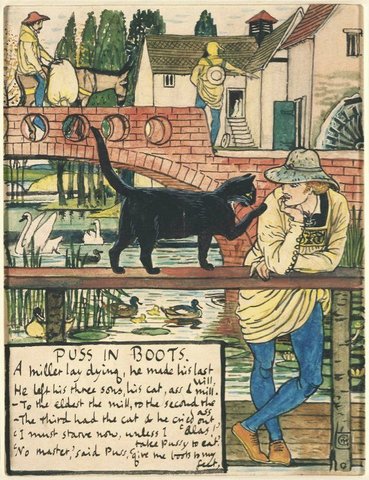 PUSS IN BOOTS.
A miller lay dying, he made his last
will,
He left his three sons, his cat, ass & mill.
-To the eldest the mill, to the second the
ass,
-The third had the cat & he cried out
'alas!
'I must starve now, unless I
take Pussy to eat.'
'No master,' said Puss, 'give me boots to my
feet,